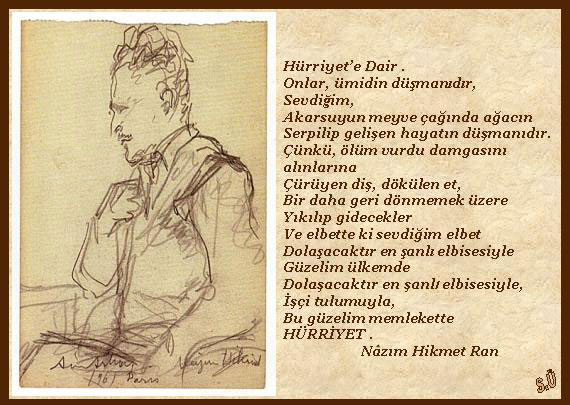 Hürriyet'e Dair .
Onlar, ümidin düşmanıdır,
Sevdiğim,
Akarsuyun meyve çağında ağacın
Serpilip gelişen hayatın düşmanıdır.
Çünkü, ölüm vurdu damgasını
alınlarına
Çürüyen diş, dökülen et,
Bir daha geri dönmemek üzere
Yıkılıp gidecekler
Ve elbette ki sevdiğim elbet
Dolaşacaktır en şanlı elbisesiyle
Güzelim ülkemde
Dolaşacaktır en şanlı elbisesiyle,
İşçi tulumuyla,
Bu güzelim memlekette
HÜRRİYET .
Nâzım Hikmet Ran
Paris
S.Ü